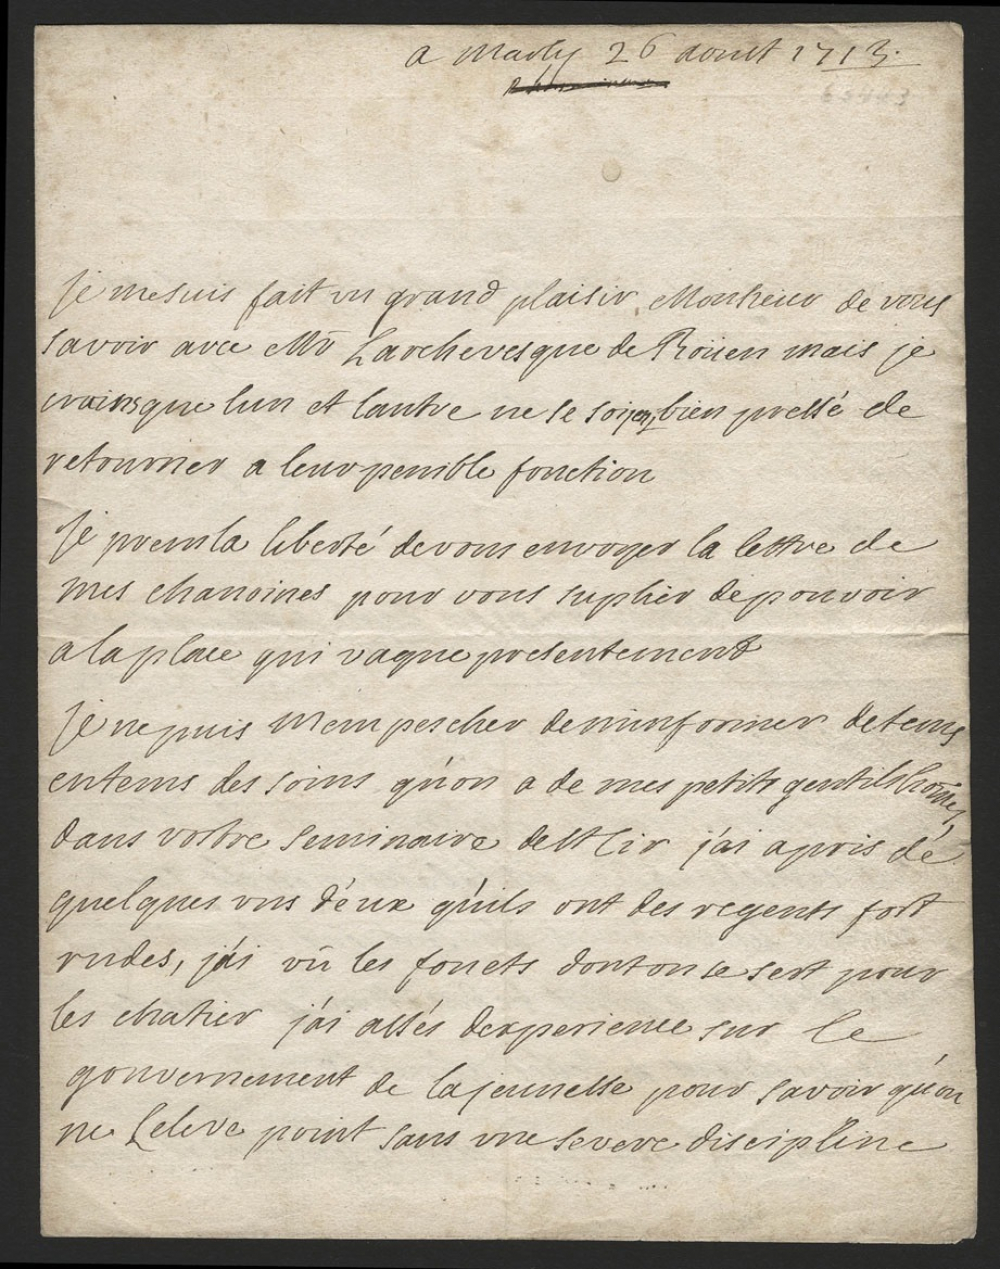 a Marly 26 aoust 1713.
Je me suis fait un grand plaisir Monsieur de vous
savoir avec Mr Larchevesque de Roüen mais je
crains que lun et lautre ne se soijent bien pressé de
retourner a leur penible fonction
Je prens la liberté de vous envoyer la lettre de
mes chanoines pour vous suplier de pouvoir
a la place qui vaque presentement
Je ne puis mempescher de minformer de tems
en tems des soins qu'on a de mes petits gentilshomes
dans vostre seminaire de St Cir j'ai apris de
quelques uns d'eux qu'ils ont des regents fort
rudes, j'ai vû les fouets dont on se sert pour
les chatier j'ai assés dexperience sur le
gouvernement de la jeunesse pour savoir qu'on
ne Leleve point sans une severe discipline